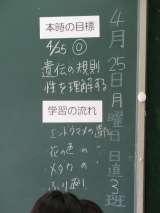 4月25日月曜日 日直 3班
本時の目標
4/25 ◎
遺伝の規則
性を理解する
学習の流れ
エンドウマメの遺伝
花の色の 〃
メダカの 〃
ふり返り